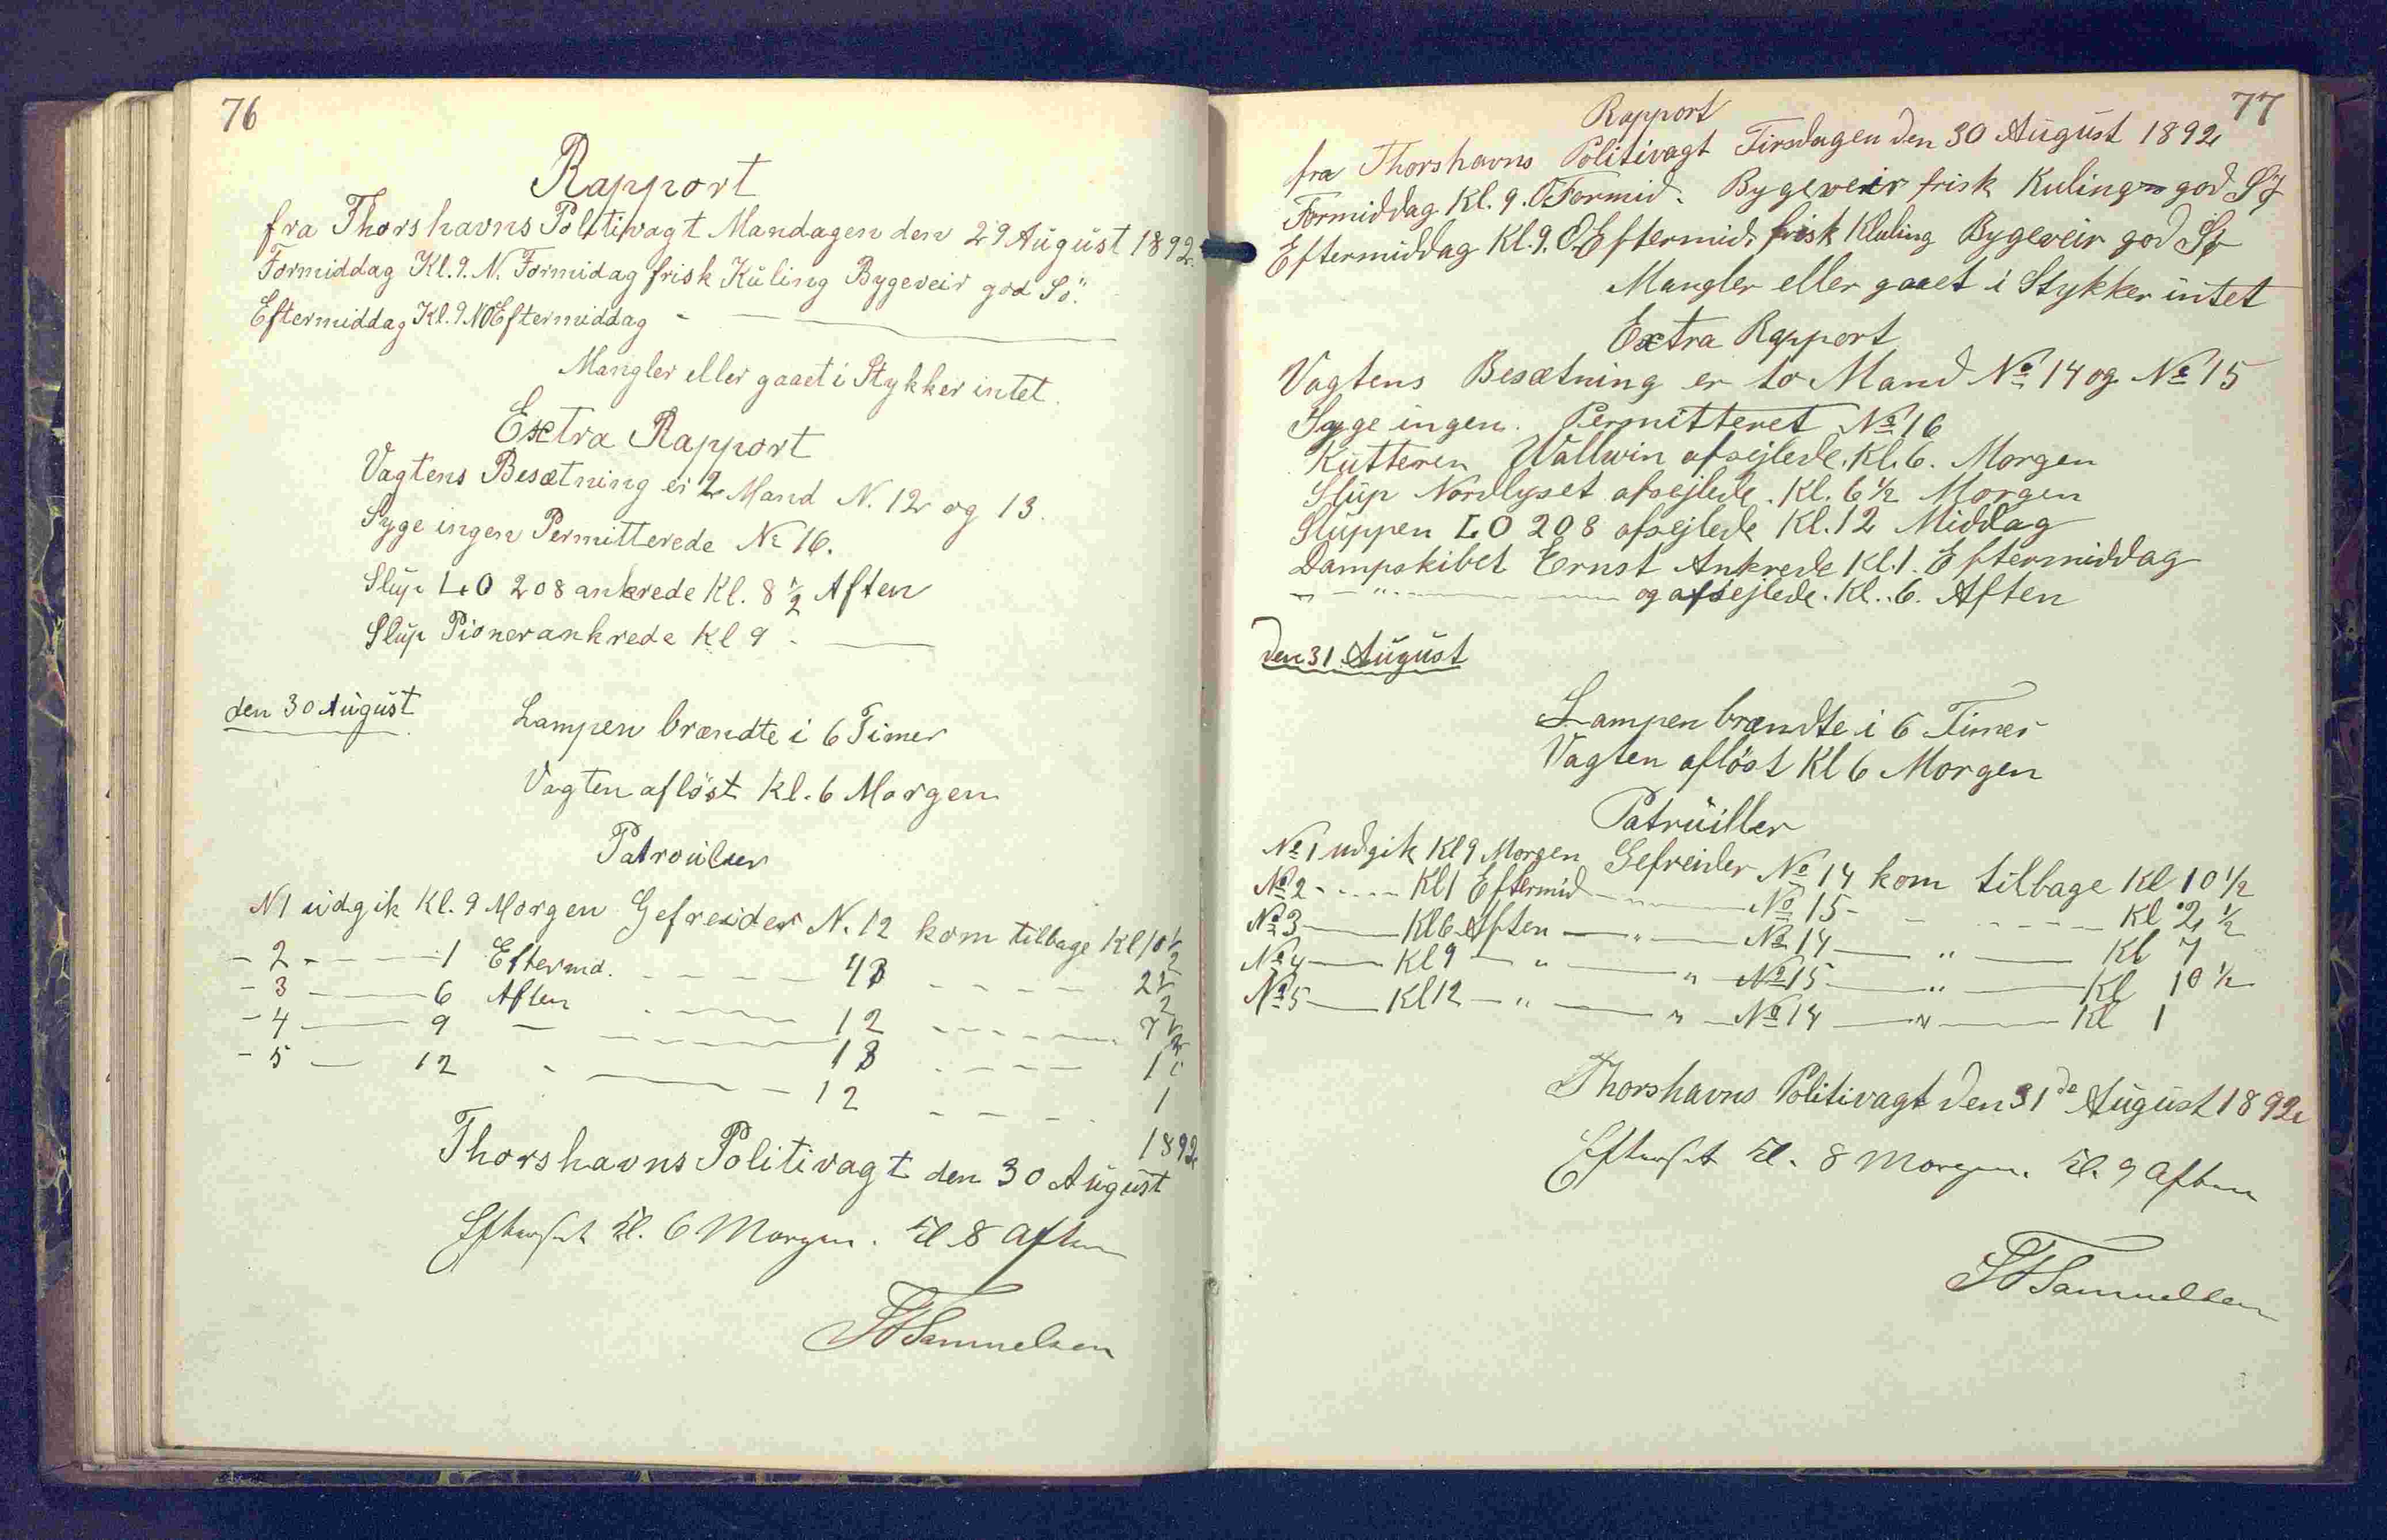 76
Rapport
fra Thorshavns Politivagt Mandagen den 29 August 1892.
Formiddag Kl. 9. N. Formidag frisk Kuling Bygeveir god Sö.
Eftermiddag Kl. 9. NO Eftermiddag - —
Mangler eller gaaet i Stykker intet.
Extra Rapport
Vagtens Besætning er 2 Mand N. 12 og 13.
Syge ingen Permitterede No 16.
Slup LO 208 ankrede Kl. 8 1/2 Aften
Slup Pioner ankrede Kl 9 - —
den 30 August
Lampen brændte i 6 Timer
Vagten aflöst Kl. 6 Morgen
Patrouller
N 1 udgik Kl. 9 Morgen Gefreider N. 12 kom tilbage Kl 10 1/2
- 2 - - - - 1 Eftermd. - - - - 13 - - - - 2 1/2
- 3 — 6 Aften - - - - 12 - - - - 7 1/2
- 4 — 9 - - - - 13 - - - -
- 5 — 12 - - - - 12 - - - 1
1892
Thorshavns Politivagt den 30 August
Efterset Kl. 6 Morgen. Kl 8 Aften
Samuelsen
77
Rapport
fra Thorshavns Politivagt Tirsdagen den 30 August 1892
Formiddag Kl. 9. O Formid. Bygeveir frisk Kuling god Sø
Eftermiddag Kl. 9. O. Eftermid. frisk Kuling Bygeveir god Sø
Mangler eller gaaet i Stykker intet
Extra Rapport
Vagtens Besætning er to Mand No 14 og No 15
Syge ingen. Permitteret No 16
Kutteren Wallwin afsejlede. Kl. 6. Morgen
Slup Nordlyset afsejlede. Kl. 6 1/2 Morgen
Sluppen LO 208 afsejlede Kl. 12 Middag
Dampskibet Ernst Ankrede Kl. 1. Eftermiddag
— " — og afsejlede. Kl. 6. Aften
den 31 August
Lampen brændte i 6 Timer
Vagten aflöst Kl 6 Morgen
Patruiller
No 1 udgik Kl 9 Morgen Gefreider No 14 kom tilbage Kl 10 1/2
No 2 - - - - Kl 1 Eftermid — No 15 - - - - Kl 2 1/2
No 3 — Kl 6 Aften — " — No 14 — " — Kl 7
No 4 — Kl 9 — " — " — No 15 — " — Kl 10 1/2
No 5 — Kl 12 — " — " — No 14 — " — Kl 1
Thorshavns Politivagt den 31de August 1892
Efterset Kl. 8 Morgen. Kl. 9 Aften
Samuelsen